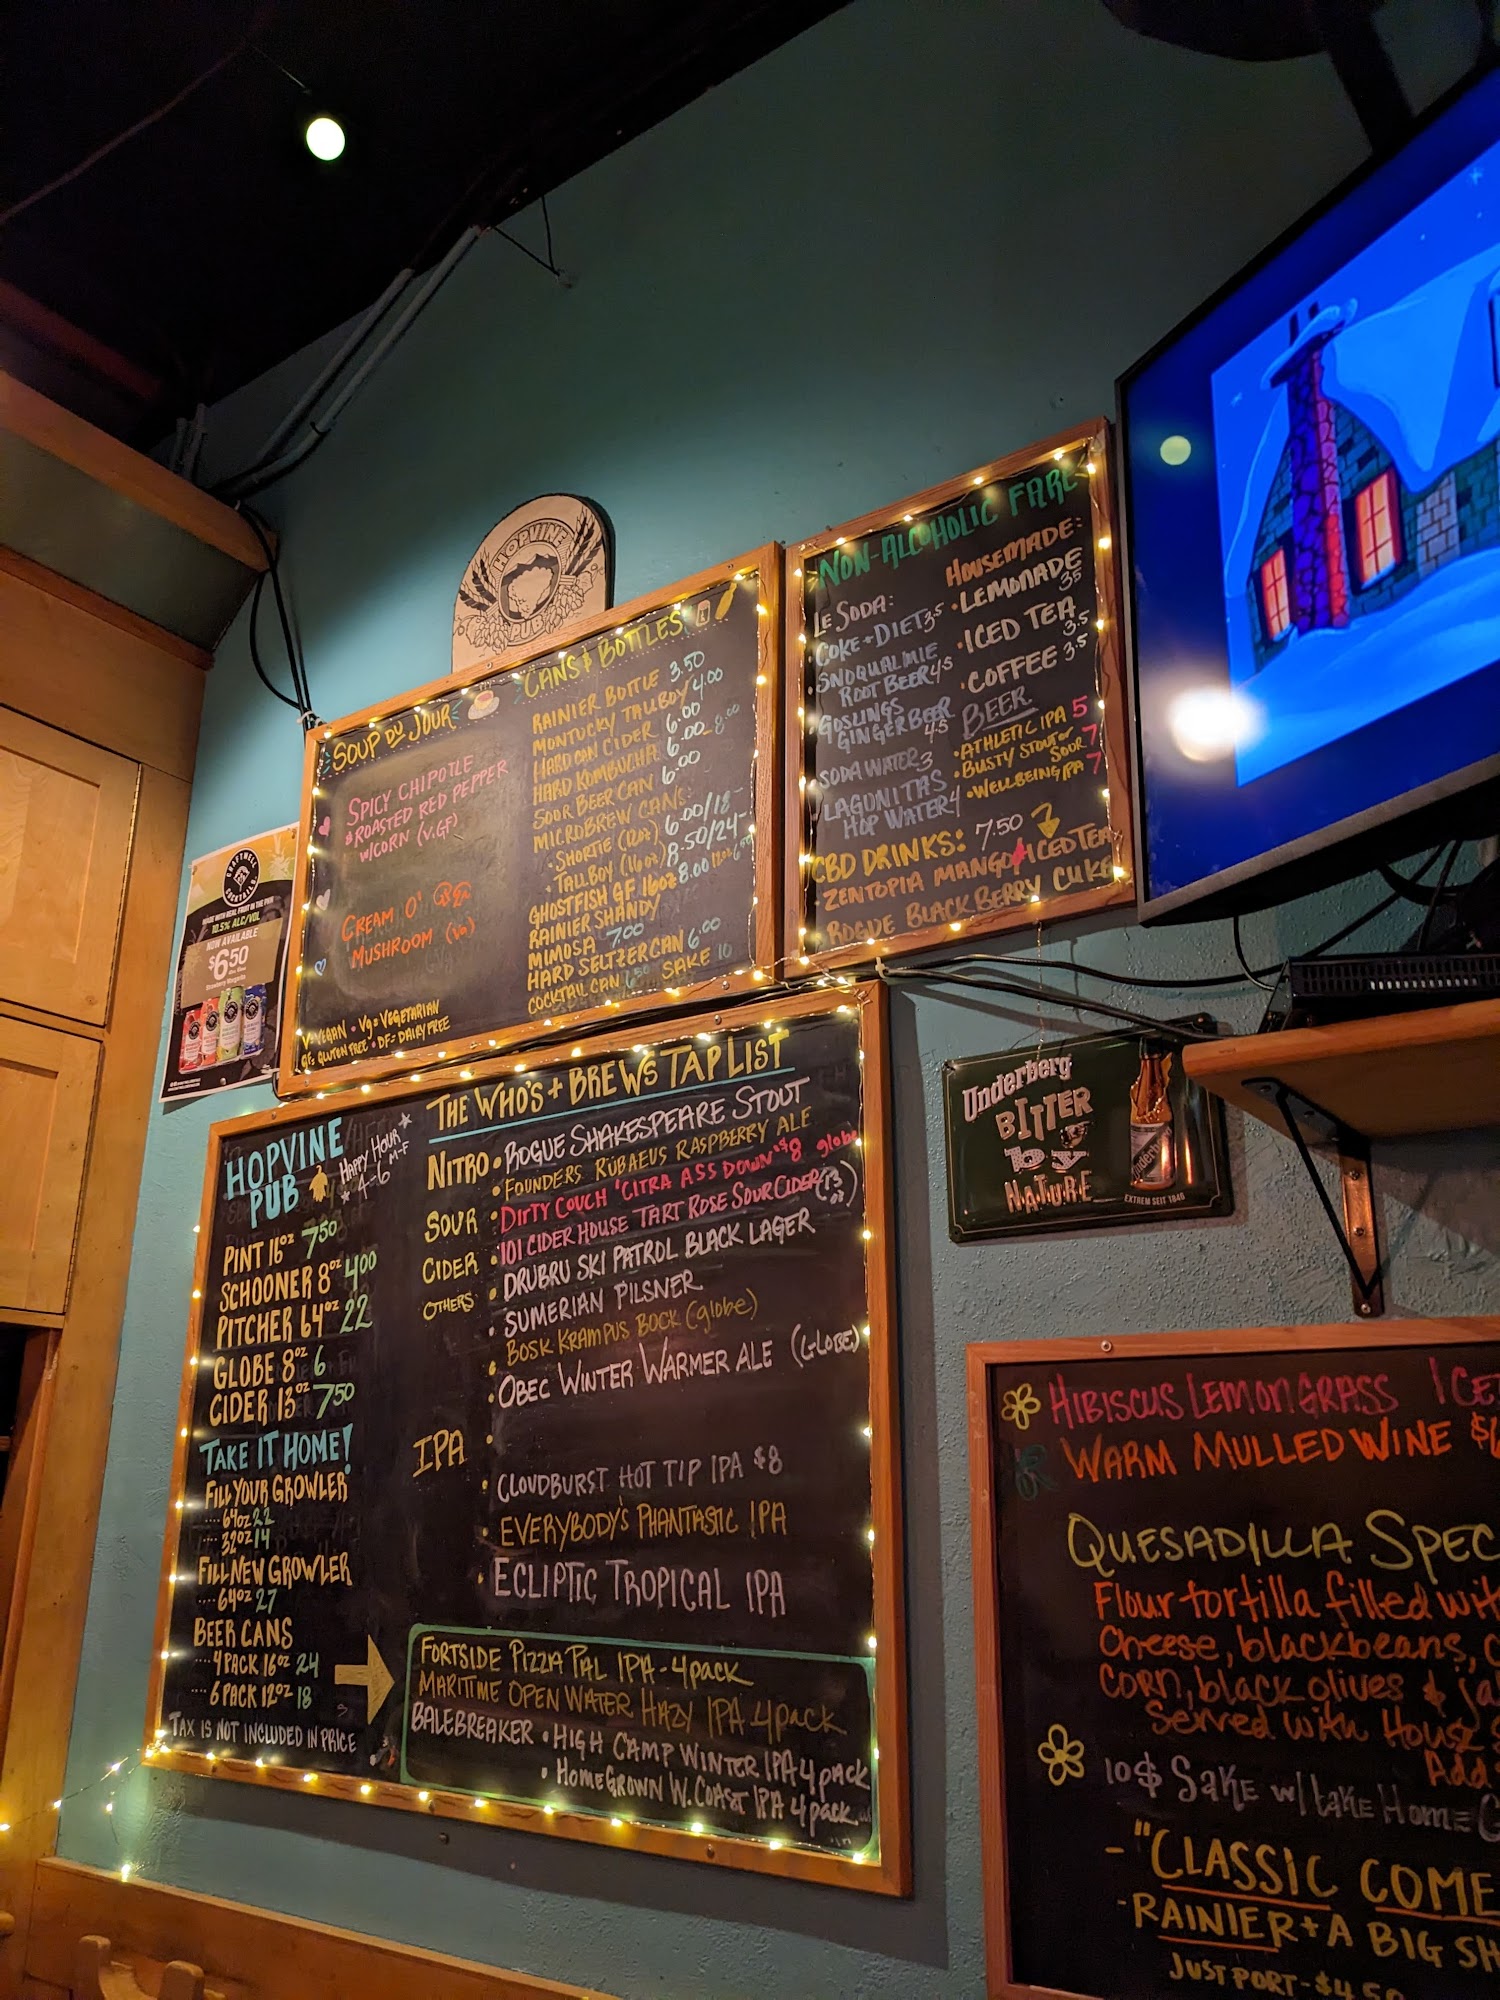 HOPVINE
PUB
SOUP DU JOUR
SPICY CHIPOTLE
& ROASTED RED PEPPER
w/CORN (V.GF)
CREAM O'
MUSHROOM (VG)
V=VEGAN • Vg=VEGETARIAN
GF= GLUTEN FREE • DF=DAIRY FREE
CANS & BOTTLES
RAINIER BOTTLE 3.50
MONTUCKY TALLBOY 4.00
HARD CAN CIDER 6.00
HARD KOMBUCHA 6.00-8.00
SOUR BEER CAN 6.00
MICROBREW CANS:
• SHORTIE (12oz) 6.00/18-
• TALLBOY (16oz) 8.50/24-
GHOSTFISH GF 16oz 8.00
RAINIER SHANDY
MIMOSA 7.00
HARD SELTZER CAN 6.00
COCKTAIL CAN 6.50 SAKE 10
NON-ALCOHOLIC FARE
LE SODA:
• COKE + DIET 3.5
• SNOQUALMIE
ROOT BEER 4.5
• GOSLINGS
GINGER BEER
4.5
SODA WATER 3
LAGUNITAS
HOP WATER 4
HOUSEMADE:
• LEMONADE
3.5
• ICED TEA
3.5
• COFFEE 3.5
BEER
• ATHLETIC IPA 5
• BUSTY STOUT or
SOUR 7
• WELLBEING IPA 7
CBD DRINKS: 7.50
- ZENTOPIA MANGO ICED TEA
- ROGUE BLACKBERRY CUKE
CRAFTWELL
COCKTAILS
MADE WITH REAL FRUIT IN THE CAN
10.5% ALC/VOL
NOW AVAILABLE
$6.50
HOPVINE
PUB
HAPPY HOUR
4-6 M-F
PINT 16oz 7.50
SCHOONER 8oz 4.00
PITCHER 64oz 22
GLOBE 8oz 6
CIDER 13oz 7.50
TAKE IT HOME!
FILL YOUR GROWLER
.... 64oz 22
.... 32oz 14
FILL NEW GROWLER
.... 64oz 27
BEER CANS
.... 4 PACK 16oz 24
.... 6 PACK 12oz 18
TAX IS NOT INCLUDED IN PRICE
THE WHO'S + BREWS TAP LIST
NITRO • ROGUE SHAKESPEARE STOUT
• FOUNDERS RÜBAEUS RASPBERRY ALE
SOUR • DIRTY COUCH 'CITRA ASS DOWN' $8 globe
CIDER • 101 CIDER HOUSE TART ROSE SOUR CIDER (13 oz)
OTHERS • DRUBRU SKI PATROL BLACK LAGER
• SUMERIAN PILSNER
• BOSK KRAMPUS BOCK (globe)
• OBEC WINTER WARMER ALE (GLOBE)
IPA •
• CLOUDBURST HOT TIP IPA $8
• EVERYBODY'S PHANTASTIC IPA
• ECLIPTIC TROPICAL IPA
FORTSIDE PIZZA PAL IPA - 4pack
MARITIME OPEN WATER HAZY IPA 4pack
BALEBREAKER • HIGH CAMP WINTER IPA 4pack
• HOMEGROWN W. COAST IPA 4pack
Underberg
BITTER
by
NATURE
EXTREM SEIT 1846
HIBISCUS LEMONGRASS ICE
OR WARM MULLED WINE $6
QUESADILLA SPEC
Flour tortilla filled wit
Cheese, blackbeans, c
Corn, black olives & ja
Served with House
Add
10$ Sake w/ take Home
- "CLASSIC COME
- RAINIER + A BIG SH
JUST PORT - $4.50